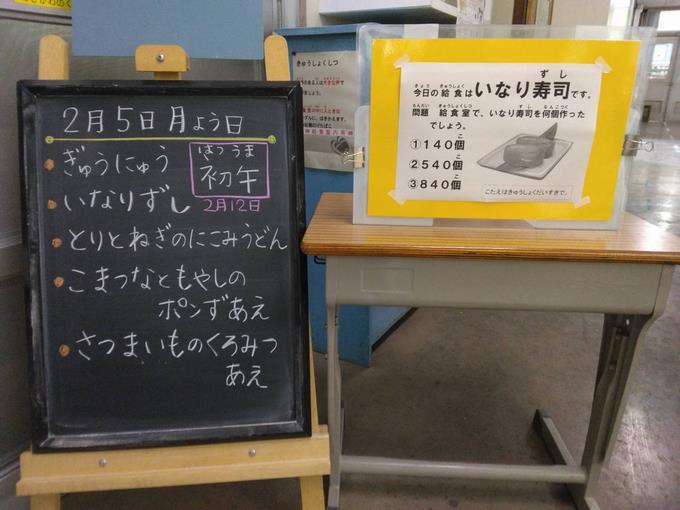 2月5日月よう日
ぎゅうにゅう
はつうま
初午
2月12日
いなりずし
とりとねぎのにこみうどん
こまつなともやしの
ポンずあえ
さつまいものくろみつ
あえ
きゅうしょくしつ
きょう きゅうしょく ずし
今日の給食はいなり寿司です。
もんだい きゅうしょくしつ ずし なんこつく
問題 給食室で、いなり寿司を何個作った
でしょう。
こ
①140個
こ
②540個
こ
③840個
こたえはきゅうしょくだいすきで。